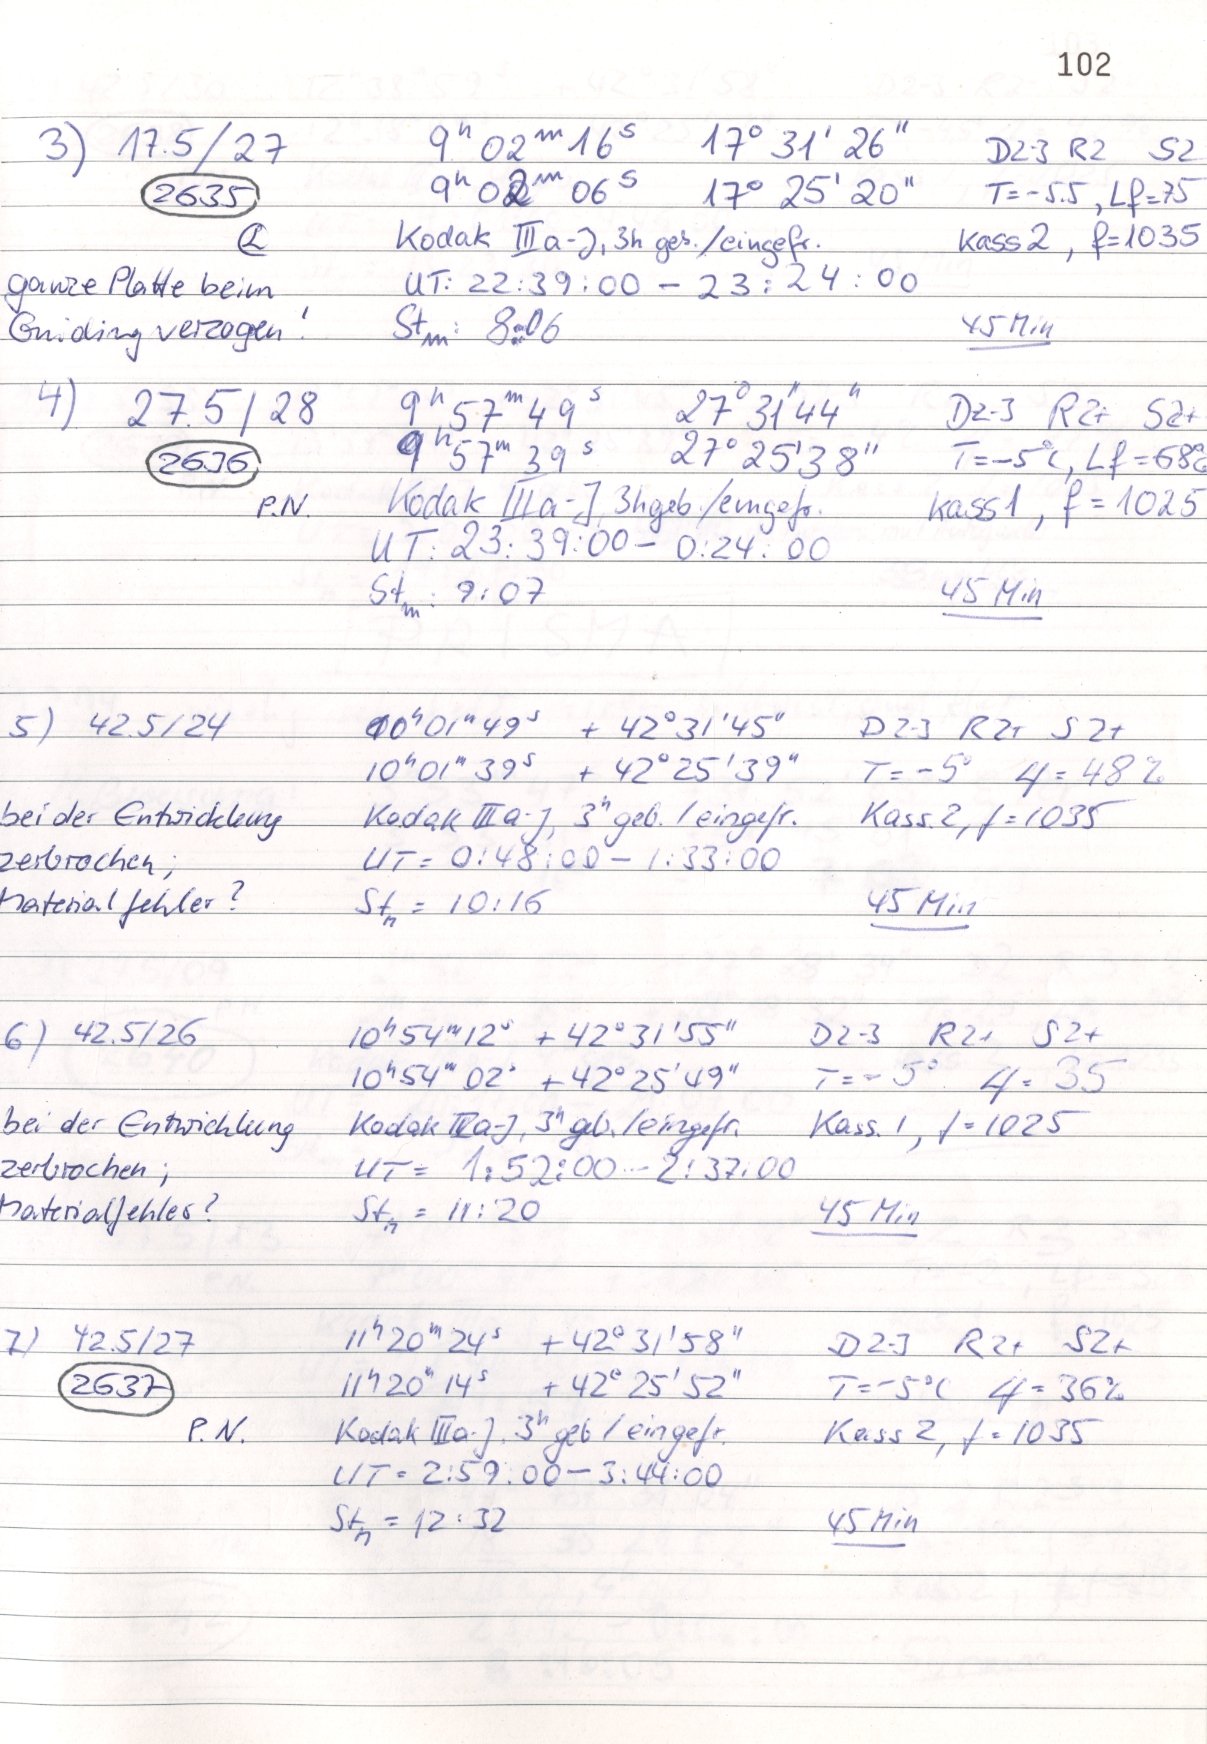 102
3) 17.5/27 9ʰ 02ᵐ 16ˢ 17° 31' 26" D2-3 R2 S2
2635 9ʰ 02ᵐ 06ˢ 17° 25' 20" T=-5.5, Lf=75
Kodak IIIa-J, 3h geb./eingefr. Kass 2, f=1035
ganze Platte beim UT: 22:39:00 - 23:24:00
Guiding verzogen! Stₘ: 8:06 45 Min
4) 27.5/28 9ʰ 57ᵐ 49ˢ 27° 31' 44" D2-3 R2+ S2+
2636 9ʰ 57ᵐ 39ˢ 27° 25' 38" T=-5°C, Lf=68%
P.N. Kodak IIIa-J, 3h geb./eingefr. Kass 1, f=1025
UT: 23:39:00 - 0:24:00
Stₘ: 9:07 45 Min
5) 42.5/24 10ʰ 01ᵐ 49ˢ + 42° 31' 45" D2-3 R2+ S2+
10ʰ 01ᵐ 39ˢ + 42° 25' 39" T=-5° Lf=48%
bei der Entwicklung Kodak IIIa-J, 3ʰ geb./eingefr. Kass. 2, f=1035
zerbrochen; UT= 0:48:00 - 1:33:00
Materialfehler? Stₘ = 10:16 45 Min
6) 42.5/26 10ʰ 54ᵐ 12ˢ + 42° 31' 55" D2-3 R2+ S2+
10ʰ 54ᵐ 02ˢ + 42° 25' 49" T=-5° Lf=35
bei der Entwicklung Kodak IIIa-J, 3ʰ geb./eingefr. Kass. 1, f=1025
zerbrochen; UT= 1:52:00 - 2:37:00
Materialfehler? Stₘ = 11:20 45 Min
7) 42.5/27 11ʰ 20ᵐ 24ˢ + 42° 31' 58" D2-3 R2+ S2+
2637 11ʰ 20ᵐ 14ˢ + 42° 25' 52" T=-5°C Lf=36%
P.N. Kodak IIIa-J, 3ʰ geb/eingefr. Kass 2, f=1035
UT= 2:59:00 - 3:44:00
Stₘ = 12:32 45 Min